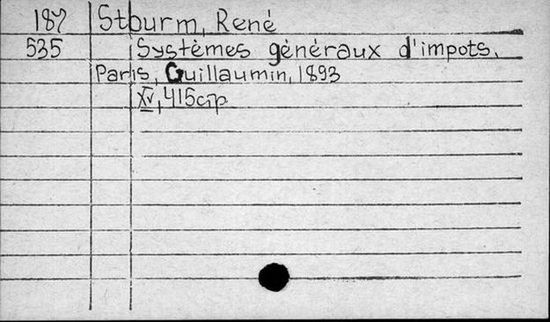 187 Stourm, René
535 Systèmes généraux d'impots.
Paris, Guillaumin, 1893
XV, 415 cɪp